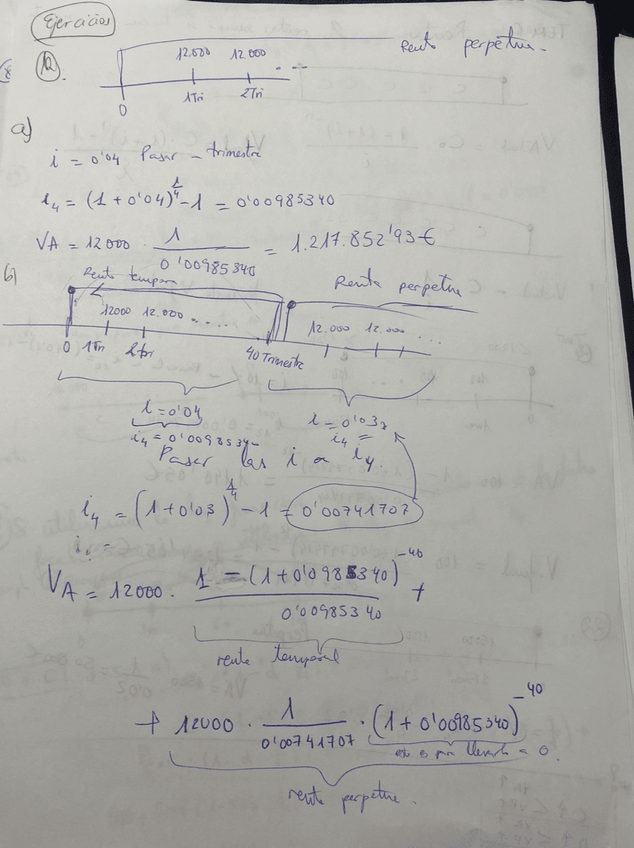 Ejercicios
12.
12.000 12.000 ... Renta perpetua.
0 1Tri 2Tri
a)
i = 0'04 Pasar - trimestre
i₄ = (1 + 0'04)^¼ - 1 = 0'00985340
VA = 12000 · 1 / 0'00985340 = 1.217.852'93 €
b)
Renta tempora Renta perpetua
12000 12.000 .... 12.000 12.000 ...
0 1Tri 2Tri 40 Trimestre
i = 0'04 i = 0'03
i₄ = 0'0098534 i₄ =
Pasar las i a i₄.
i₄ = (1 + 0'03)^¼ - 1 = 0'00741707
i. =
VA = 12000 · 1 - (1 + 0'0985340)^-40 / 0'00985340 +
renta temporal
+ 12000 · 1 / 0'00741707 · (1 + 0'00985340)^-40
esto es para llevarlo a 0.
renta perpetua.